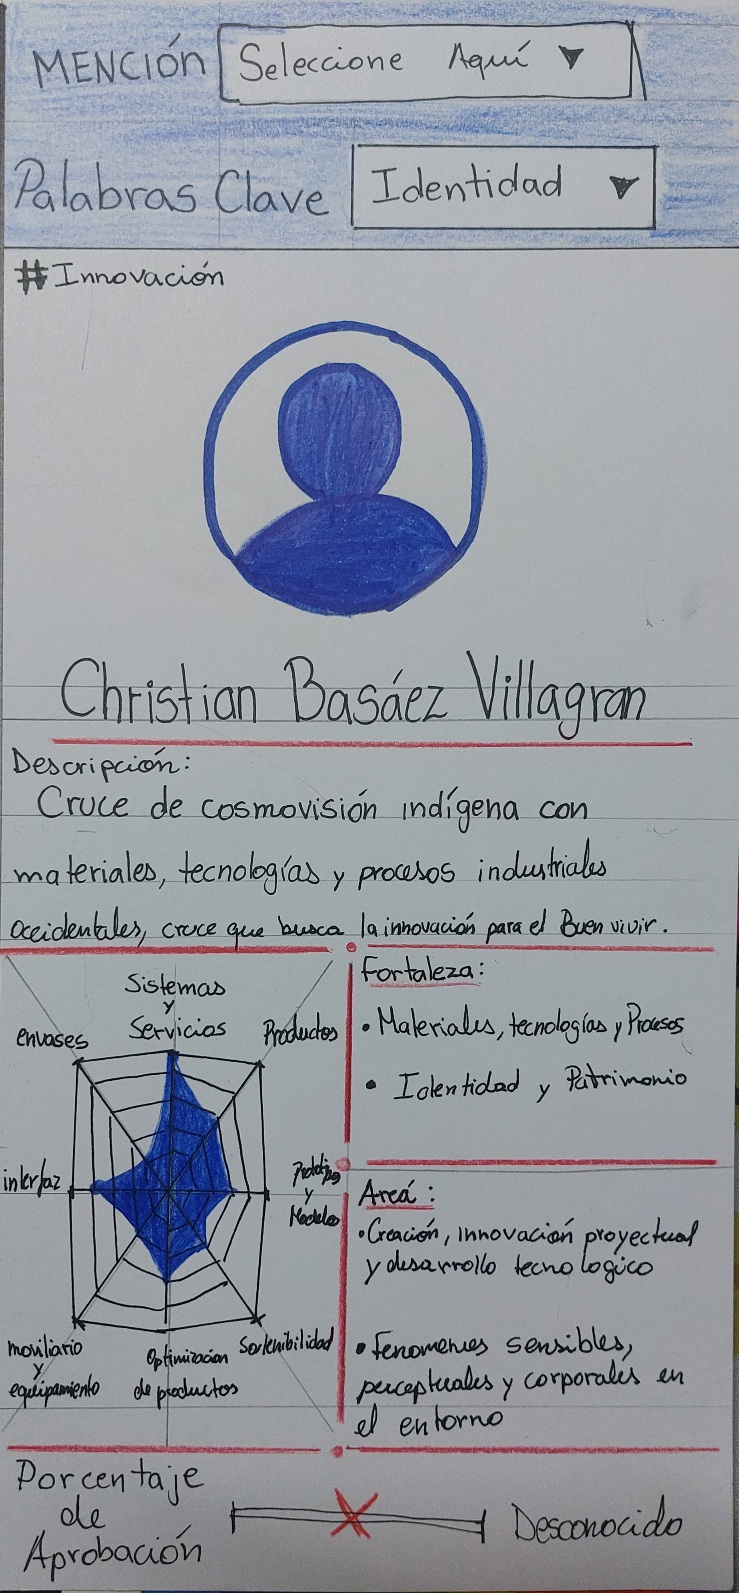 MENCIÓN Seleccione Aquí
Palabras Clave Identidad
#Innovación
Christian Basáez Villagran
Descripción:
Cruce de cosmovisión indígena con
materiales, tecnologías y procesos industriales
occidentales, cruce que busca la innovación para el Buen vivir.
Sistemas
y
Servicios
envases
Productos
interfaz
y
Modelos
moviliario
y
equipamiento
Optimizacion
de productos
Sostenibilidad
Fortaleza:
• Materiales, tecnologías y Procesos
• Identidad y Patrimonio
Areá:
• Creación, innovación proyectual
y desarrollo tecnologico
• Fenomenos sensibles,
perceptuales y corporales en
el entorno
Porcentaje
de
Aprobación
Desconocido